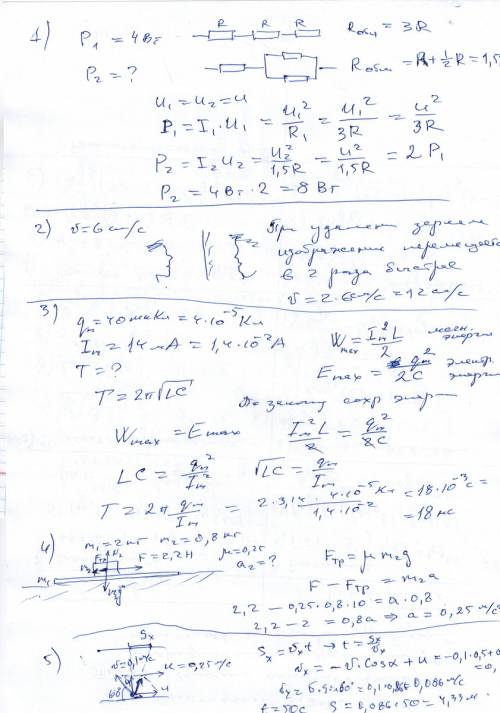 1) P₁ = 4 Вт R R R Rобщ = 3R
P₂ = ? Rобщ = R + ½R = 1,5
U₁ = U₂ = U
P₁ = I₁ · U₁ = U₁²/R₁ = U₁²/3R = U²/3R
P₂ = I₂ U₂ = U₂²/1,5R = U²/1,5R = 2 P₁
P₂ = 4 Вт · 2 = 8 Вт
2) v = 6 см/с При удалении зеркала
изображение перемещается
в 2 раза быстрее
v = 2 · 6 см/с = 12 см/с
3) qm = 40 мкКл = 4·10⁻⁵ Кл
Im = 14 мА = 1,4·10⁻² А Wmax = Im²L/2 магн. энергия
T = ? Emax = qm²/2C электр. энергия
T = 2π√LC По закону сохр энерг
Wmax = Emax Im²L/2 = qm²/2C
LC = qm²/Im² √LC = qm/Im
T = 2π qm/Im = 2·3,14·4·10⁻⁵ Кл/1,4·10⁻² = 18·10⁻³ с =
= 18 мс
4) m₁ = 2 кг m₂ = 0,8 кг
Fтр N₂ F = 2,2 Н μ = 0,25 Fтр = μ m₂g
m₁ m₂ m₂g a₂ = ? F − Fтр = m₂a
2,2 − 0,25·0,8·10 = a·0,8
2,2 − 2 = 0,8a ⇒ a = 0,25 м/с
5) Sx Sx = vx t → t = Sx/vx
v = 0,1 м/с u = 0,25 м/с vx = −v·cosα + u = −0,1·0,5 + 0
60° u = 0,
t = 50 с S = 0,086·50 = 4,33 м